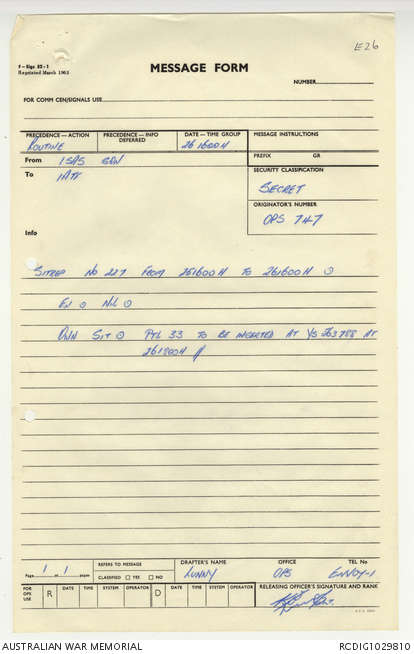 E26
F—Sigs 52-1
Reprinted March 1963
MESSAGE FORM
NUMBER
FOR COMM CEN/SIGNALS USE
PRECEDENCE—ACTION PRECEDENCE—INFO DEFERRED DATE—TIME GROUP MESSAGE INSTRUCTIONS
ROUTINE 261600H
PREFIX GR
From 1 SAS SQN
To 1ATF
SECURITY CLASSIFICATION
SECRET
ORIGINATOR'S NUMBER
OPS 747
Info
SITREP No 227 FROM 251600H TO 261600H
EN NIL
OWN SIT PTL 33 TO BE INSERTED AT YS 263788 AT
261800H
Page 1 of 1 pages
REFERS TO MESSAGE
CLASSIFIED YES NO
DRAFTER'S NAME OFFICE TEL No
LUNNY OPS ENVOY-1
FOR OPS USE R DATE TIME SYSTEM OPERATOR D DATE TIME SYSTEM OPERATOR
RELEASING OFFICER'S SIGNATURE AND RANK
AUSTRALIAN WAR MEMORIAL RCDIG1029810